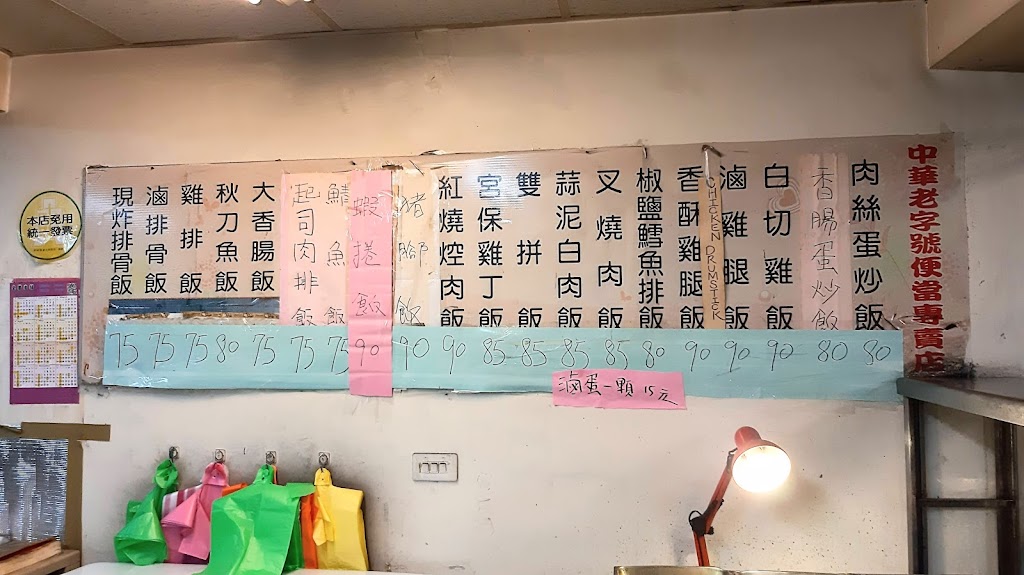 中華老字號便當專賣店
肉絲蛋炒飯 80
香腸蛋炒飯 80
白切雞飯 90
滷雞腿飯 90
CHICKEN DRUMSTICK
香酥雞腿飯 90
椒鹽鱈魚排飯 80
叉燒肉飯 85
蒜泥白肉飯 85
雙拼飯 85
宮保雞丁飯 85
紅燒焢肉飯 90
豬腳飯 90
蝦捲飯 90
鯖魚飯 75
起司肉排飯 75
大香腸飯 75
秋刀魚飯 80
雞排飯 75
滷排骨飯 75
現炸排骨飯 75
滷蛋一顆15元
本店免用
統一發票